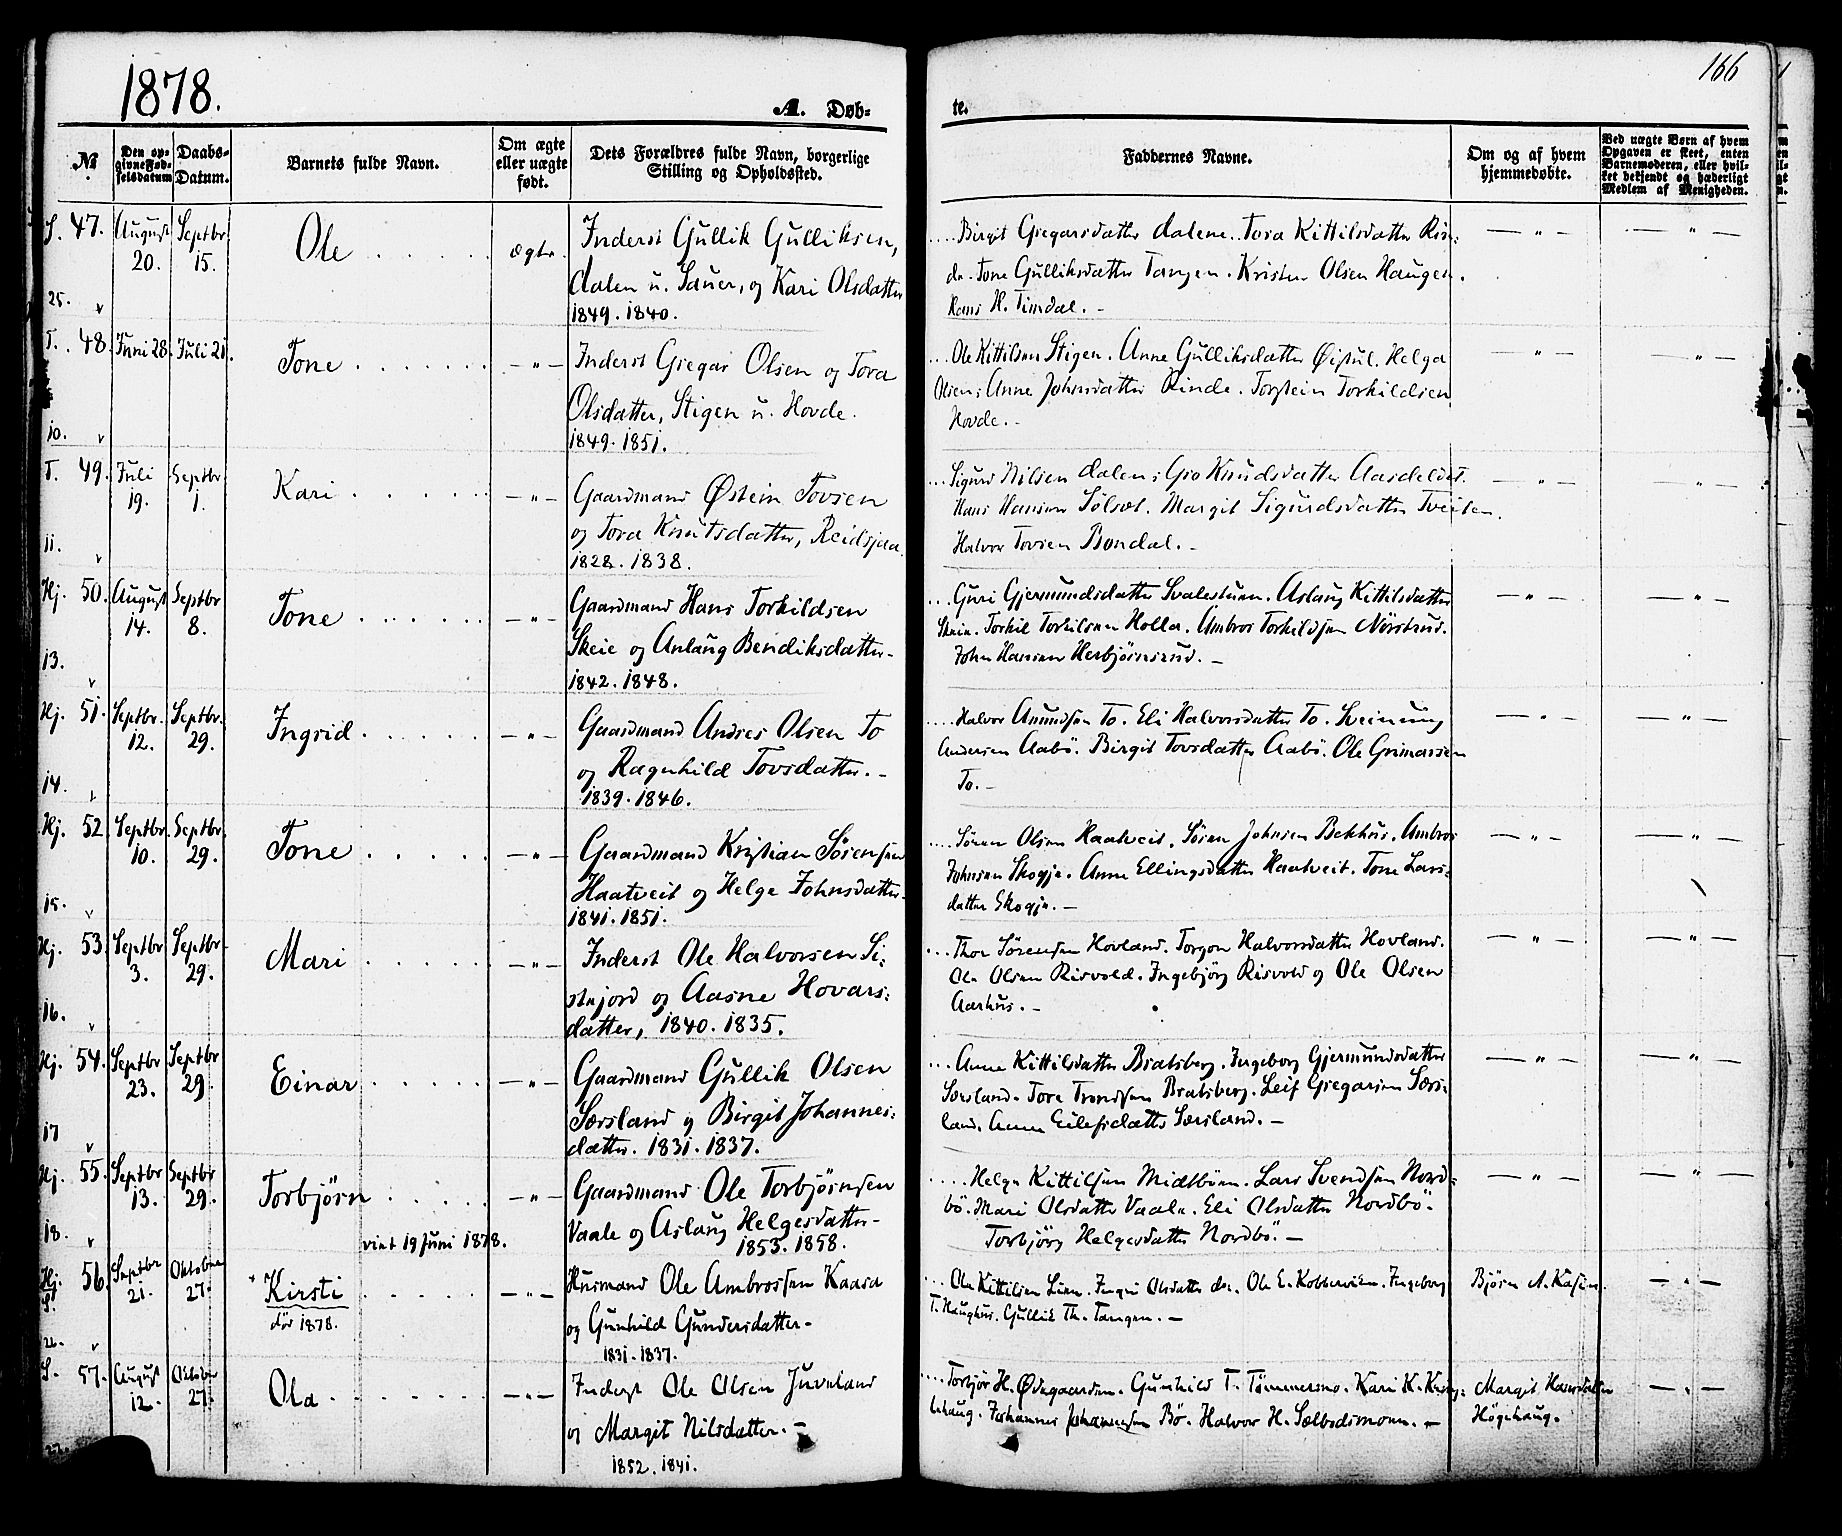 1878.
166
A. Døb-
te.
№
Den op-
givne Fød-
selsdatum
Daabs-
Datum.
Barnets fulde Navn.
Om ægte
eller uægte
født.
Dets Forældres fulde Navn, borgerlige
Stilling og Opholdssted.
Faddernes Navne.
Om og af hvem
hjemmedøbte.
Ved uægte Børn af hvem
Opgaven er skeet, enten
Barnemoderen, eller hvil-
ket bekjendt og hæderligt
Medlem af Menigheden.
S. 47. August 20. Septbr. 15. Ole ægte.
Inderst Gullik Gulliksen,
Dalen u. Sauer, og Kari Olsdatter
1849. 1840.
25.
Birgit Gregarsdatter Dalene. Tora Kittilsdatter Rin-
de. Tone Gulliksdatter Tangen. Kristen Olsen Haugen.
Hans H. Timdal. -
— " —
— " —
T. 48. Juni 28. Juli 21. Tone — " —
Inderst Gregar Olsen og Tora
Olsdatter, Stigen u. Hovde.
1849. 1851.
10.
Ole Kittilsen Stigen. Anne Gulliksdatter Øisul. Helga
Olsen; Anne Johnsdatter Rinde. Torstein Torkildsen
Hovde. -
— " —
— " —
T. 49. Juli 19. Septbr. 1. Kari — " —
Gaardmand Østein Tovsen
og Tora Knutsdatter, Reidsjaa
1828. 1838.
11.
Sigurd Nilsen Dalen; Gro Knudsdatter Aasdeldet.
Hans Hansen Sølsvet. Margit Sigurdsdatter Tveiten.
Halvor Tovsen Bondal. -
— " —
— " —
Hj. 50. August 14. Septbr 8. Tone — " —
Gaardmand Hans Torkildsen
Skeie og Anlaug Bendiksdatter -
1842. 1848.
13.
Guri Gjermundsdatter Svalestuen. Aslaug Kittilsdatter
Skeie. Torkil Torkilsen Holla. Ambros Torkildsen Nørstrud.
John Hansen Herbjørnsrud. -
— " —
— " —
Hj. 51. Septbr. 12. Septbr. 29. Ingrid — " —
Gaardmand Andres Olsen To
og Ragnhild Tovsdatter. -
1839. 1846.
14.
Halvor Amundsen To. Eli Halvorsdatter To. Sveinung
Andersen Aabø. Birgit Tovsdatter Aabø. Ole Grimarsen
To. -
— " —
— " —
Hj. 52. Septbr. 10. Septbr. 29. Tone — " —
Gaardmand Kristian Sørensen
Haatveit og Helge Johnsdatter -
1841. 1851.
15.
Søren Olsen Haatveit. Søren Johnsen Bekhus. Ambros
Johnsen Skogje. Anne Ellingsdatter Haatveit. Tone Lars-
datter Skogje. -
— " —
— " —
Hj. 53. Septbr 3. Septbr 29. Mari — " —
Inderst Ole Halvorsen Si-
stejord og Aasne Hovars-
datter, 1840. 1835.
16.
Thor Sørensen Hovland. Torgon Halvorsdatter Hovland.
Ole Olsen Risvold. Ingebjørg Risvold og Ole Olsen
Aarhus. -
— " —
— " —
Hj. 54. Septbr 23. Septbr 29. Einar — " —
Gaardmand Gullik Olsen
Sørsland og Birgit Johannes-
datter. 1831. 1837.
17
Anne Kittilsdatter Bratsberg. Ingeborg Gjermundsdatter
Sørsland. Tore Trondsen Bratsberg. Leif Gregarsen Sørs-
land. Anne Eilefsdatter Sørsland. -
— " —
— " —
Hj. 55. Septbr 13. Septbr 29. Torbjørn — " —
vist 19 Juni 1878.
Gaardmand Ole Torbjørnsen
Vaale og Aslaug Helgesdatter -
1853. 1858.
18.
Helge Kittilsen Midtbøen. Lars Svendsen Nord-
bø. Mari Olsdatter Vaale. Eli Olsdatter Nordbø.
Torbjørg Helgesdatter Nordbø. -
— " —
— " —
Hj. 56. Septbr 21. Oktober 27. Kirsti — " —
død 1878.
Husmand Ole Ambrossen Kaasa
og Gunhild Gundersdatter -
1831. 1837.
Ole Kittilsen Lien. Ingri Olsdatter do. Ole E. Kobbervien. Ingeborg
T. Haughus. Gullik Th. Tangen. -
Bjørn A. Kasin.
— " —
S. 57. August 12. Oktober 27. Ola — " —
Inderst Ole Olsen Juveland
og Margit Nilsdatter. -
1852. 1841.
Torbjør H. Ødegaarden. Gunhild T. Tømmermo. Kari K.
Johannes Johannesen Bø. Halvor H. Sølbodsmoen. -
Margit Hansdatter
Högehaug.
— " —